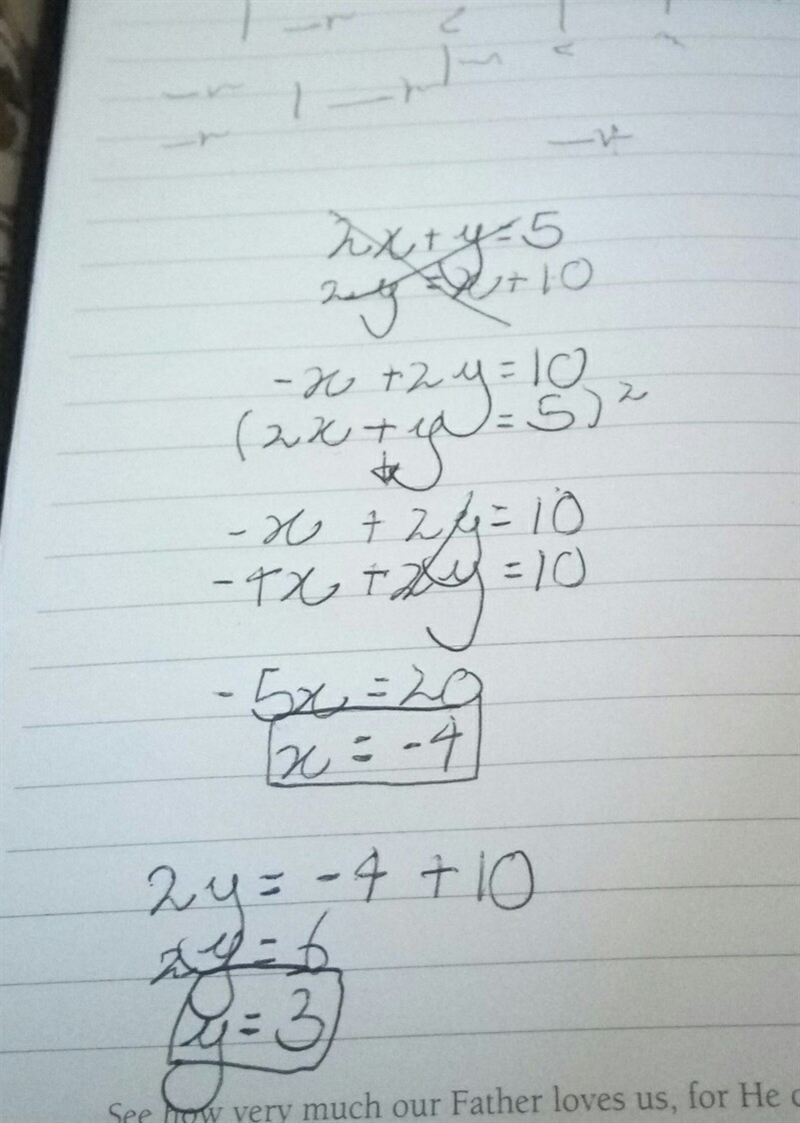 2x + y = 5
2y = x + 10
-x + 2y = 10
(2x + y = 5)²
-x + 2y = 10
-4x + 2y = 10
-5x = 20
x = -4
2y = -4 + 10
2y = 6
y = 3
See how very much our Father loves us, for He